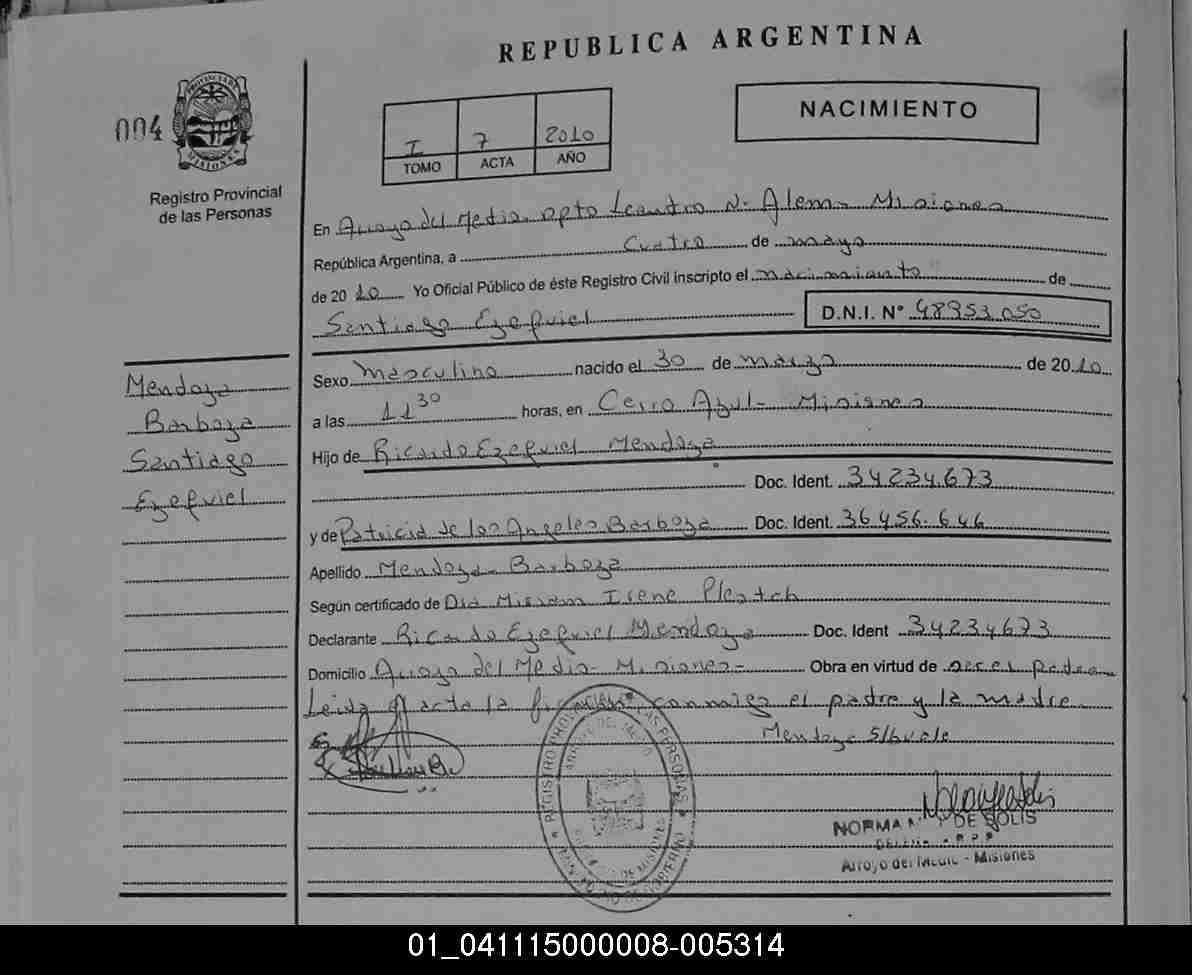 REPUBLICA ARGENTINA
004
PROVINCIA DE
MISIONES
Registro Provincial
de las Personas
I 7 2010
TOMO ACTA AÑO
NACIMIENTO
En Arroyo del Medio Dpto Leandro N. Alem - Misiones
República Argentina, a Cuatro de mayo
de 2010 Yo Oficial Público de éste Registro Civil inscripto el nacimiento de
Santiago Ezequiel D.N.I. Nº 48953.050
Sexo masculino nacido el 30 de marzo de 2010
a las 11 30 horas, en Cerro Azul - Misiones
Hijo de Ricardo Ezequiel Mendoza
Doc. Ident. 34234.673
y de Patricia de los Angeles Barboza Doc. Ident. 36.456.646
Apellido Mendoza - Barboza
Según certificado de Dra Miriam Irene
Declarante Ricardo Ezequiel Mendoza Doc. Ident 34234673
Domicilio Arroyo del Medio - Misiones - Obra en virtud de ser el padre
Leida el acta la firman conmigo el padre y la madre
Mendoza S/b vale
Mendoza
Barboza
Santiago
Ezequiel
REGISTRO PROV. DE LAS PERSONAS
ARROYO DEL MEDIO
DE MISIONES
DE GOBIERNO
NORMA DE SOLIS
Arroyo del Medio - Misiones
01_041115000008-005314